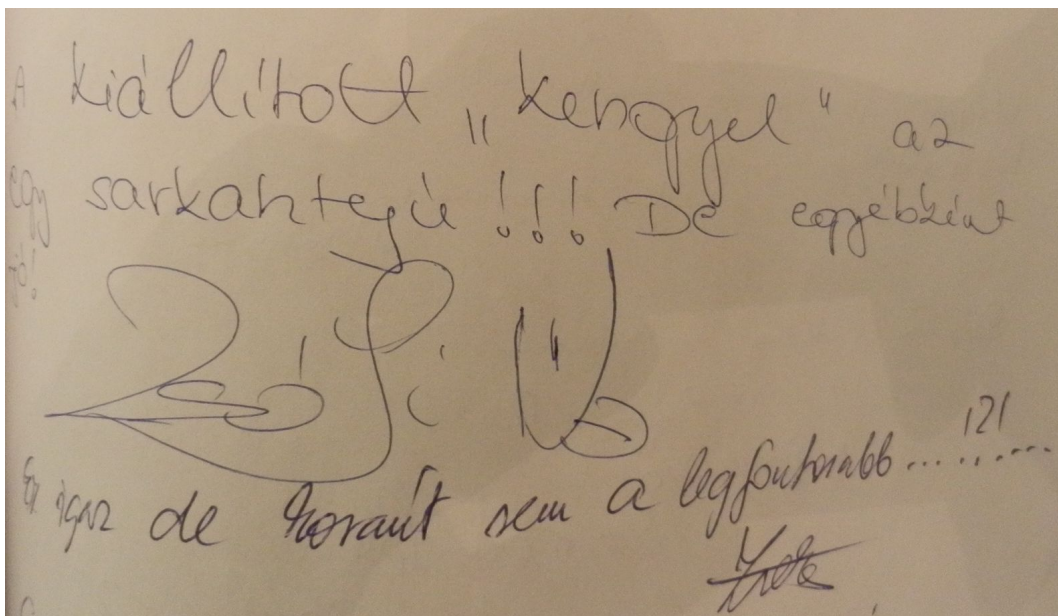 A kiállított „kengyel" az
egy sarkantyú!!! De egyébként
jó!
Zsófi
Ez igaz de koránt sem a legfontosabb.........